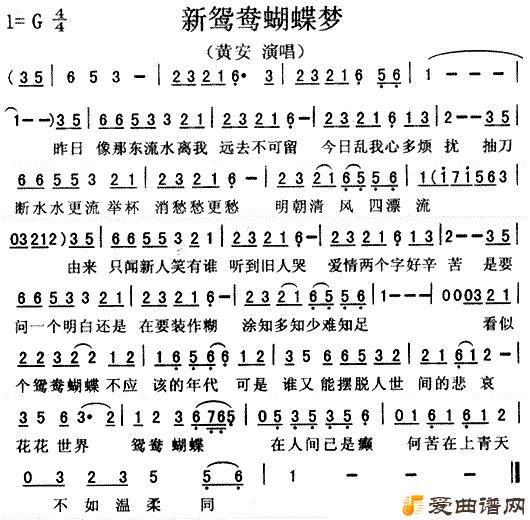 新鸳鸯蝴蝶梦
1=G 4/4
（黄安 演唱）
(35 | 6 5 3 - | 23216· 3 | 2321 6 56 | 1 - - - |
1--)35 | 665353 21 | 23216 1 3 | 2321 6 13 | 2--35 |
昨日 像那东流水离我 远去不可留 今日乱我心多烦 扰 抽刀
665653 21 | 23216 1 3 | 23216565 | 1(i7i563 |
断水水更流 举杯 消愁愁更愁 明朝清 风 四漂 流
03212)35 | 665353 21 | 23216 1 3 | 2321 6 13 | 2--35 |
由来 只闻新人笑有谁 听到旧人哭 爱情两个字好辛 苦 是要
665353 21 | 23216 1 3 | 232165 65 | 1--- | 00 0321 |
问一个明白还是 在要装作糊 涂知多知少难知足 看似
2 2323 2 12 | 1656 6 12 | 3 2323 5 3 | 2 21612 - |
个鸳鸯蝴蝶 不应 该的年代 可是 谁又能摆脱人世 间的悲 哀
3 5 6 3· 2 | 3 6 6765 | 0535 3532 | 016 1 6123 |
花花 世界 鸳鸯 蝴蝶 在人间已是癫 何苦在上青天
0 3 2 3 5 56 | 1 - - - ‖
不 如 温柔 同
爱曲谱网